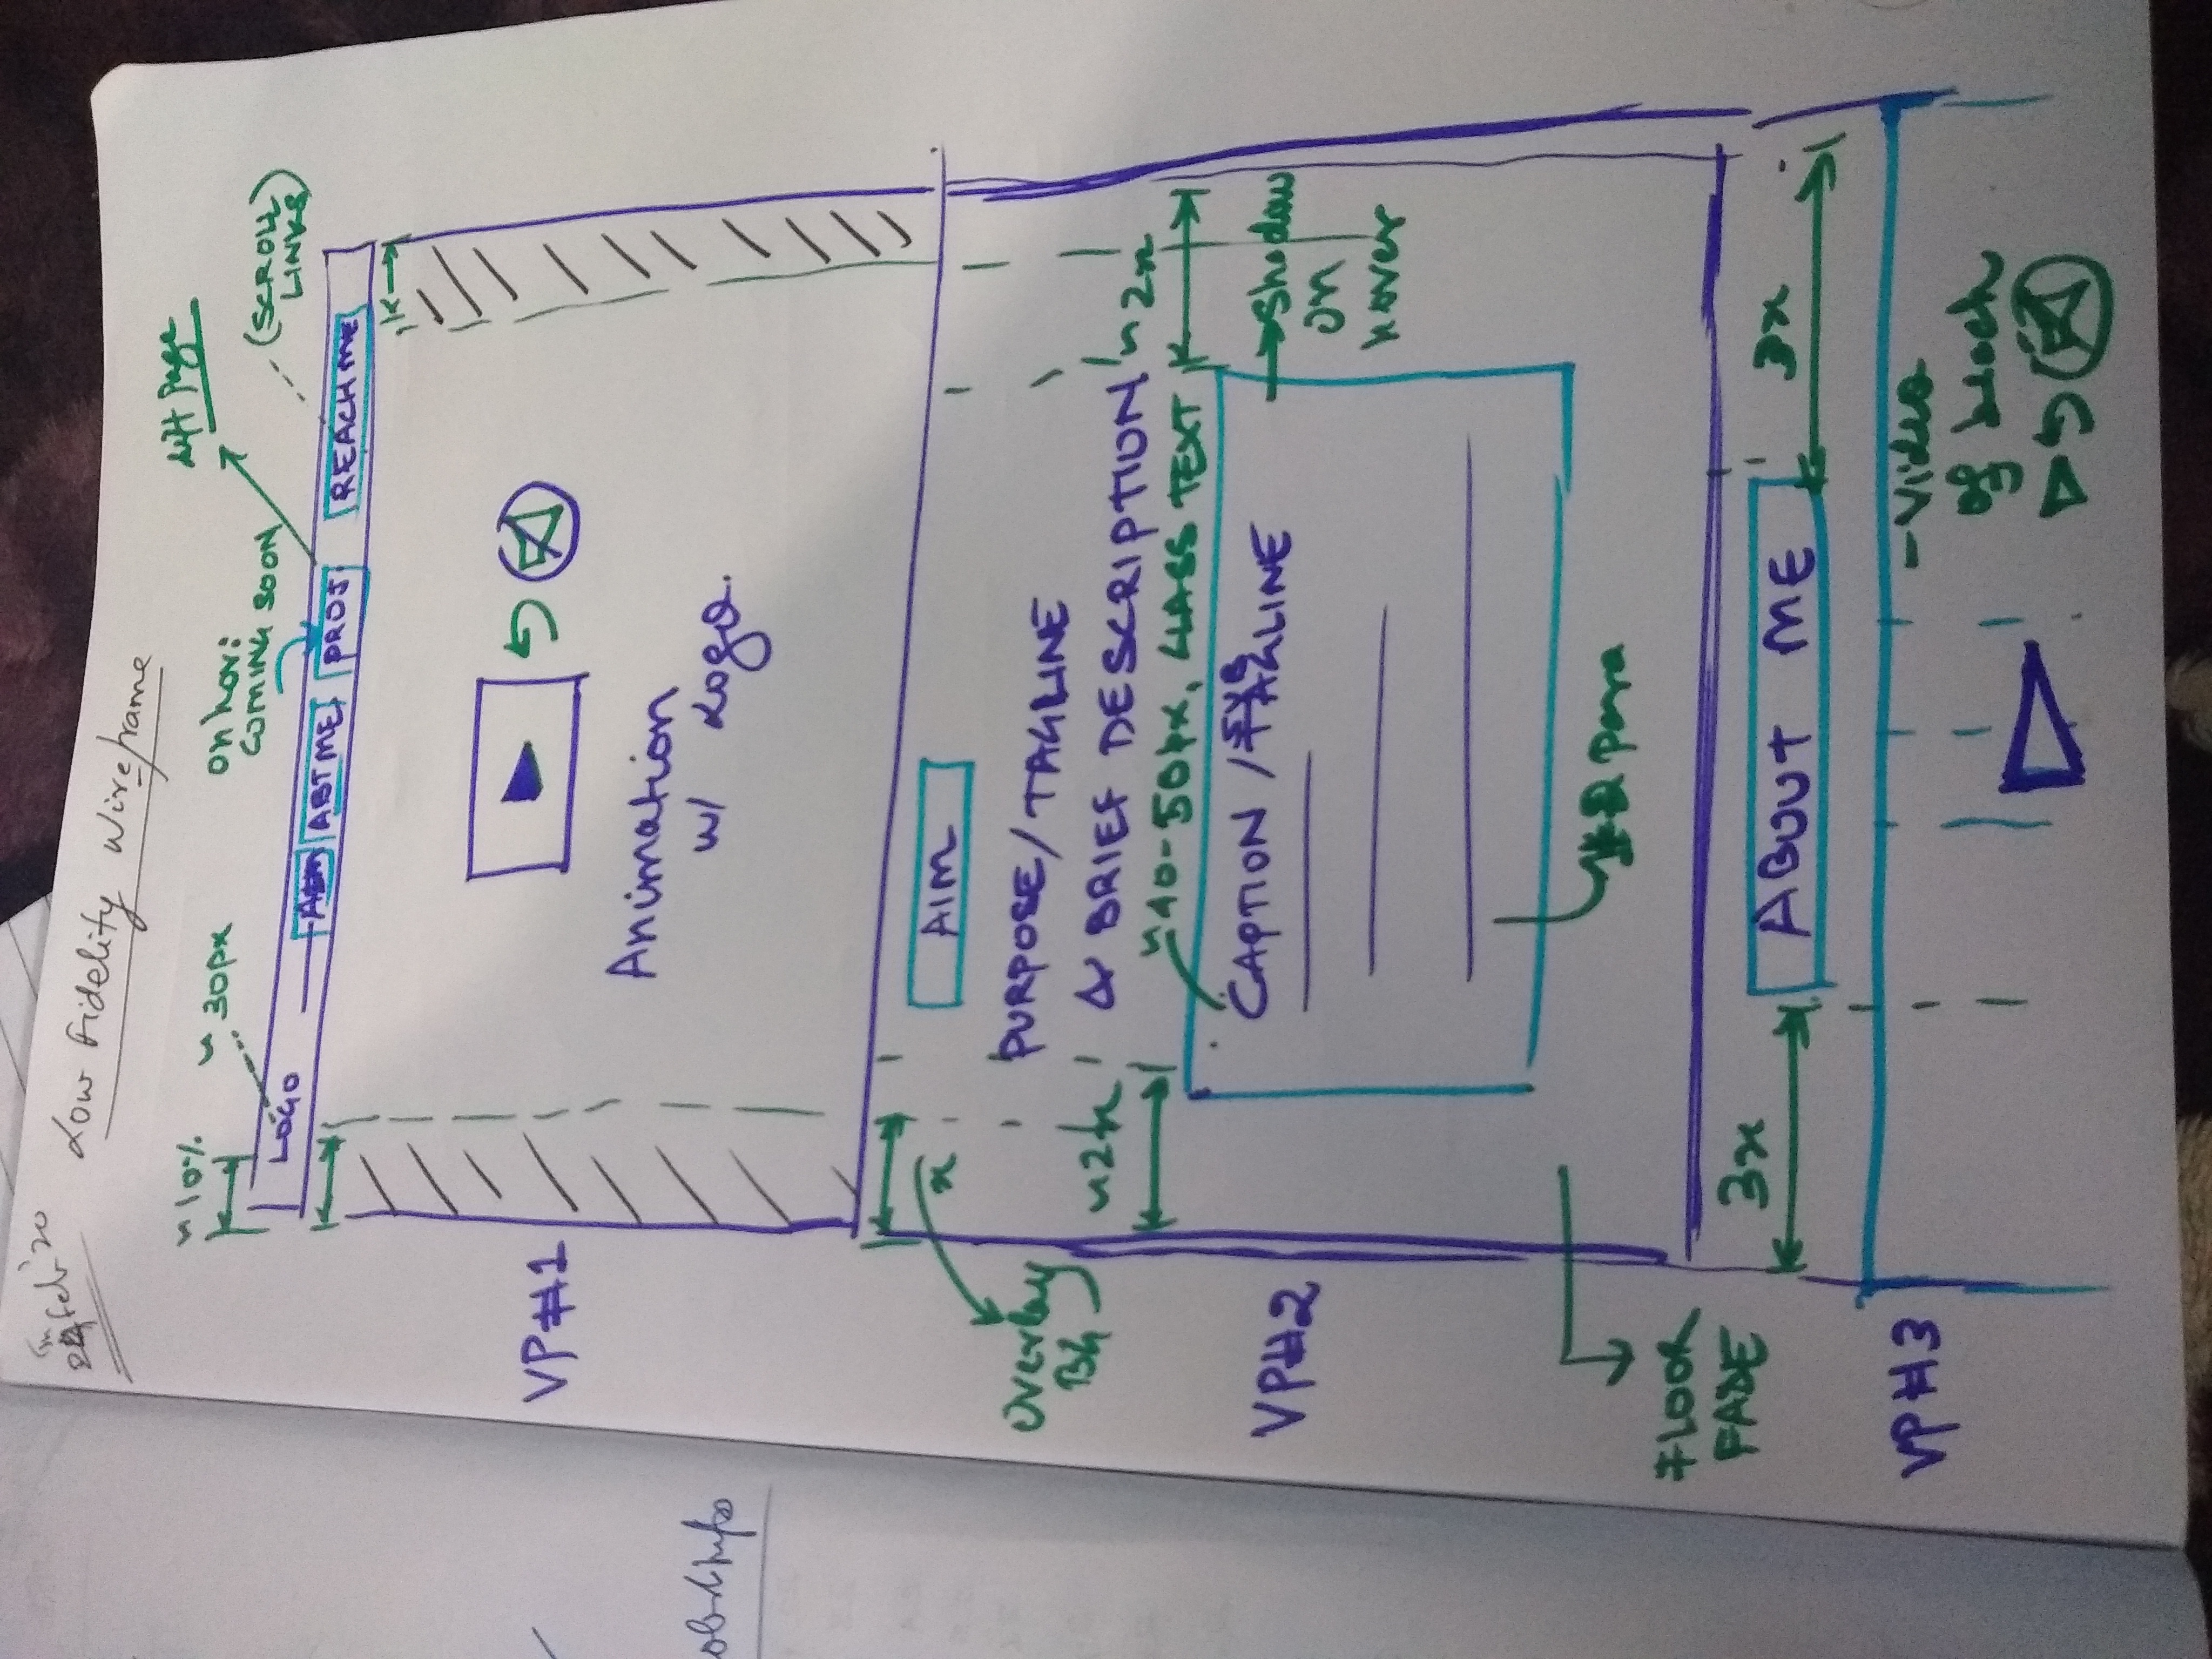 24th Feb'20
Low Fidelity Wireframe
~10%
~ 30px
on hov:
COMING SOON
diff page
(SCROLL
LINKS)
LOGO
AIM
ABT ME
PROJ
REACH ME
VP#1
Animation
w/ Logo.
x
AIM
Overlay
BG
PURPOSE/TAGLINE
& BRIEF DESCRIPTION
~2x
~2x
~40-50px, GLASS TEXT
CAPTION / SUB
TAGLINE
VP#2
Shadow
on
hover
para
FLOOR
FADE
3x
ABOUT ME
3x
VP#3
- Video
of beach